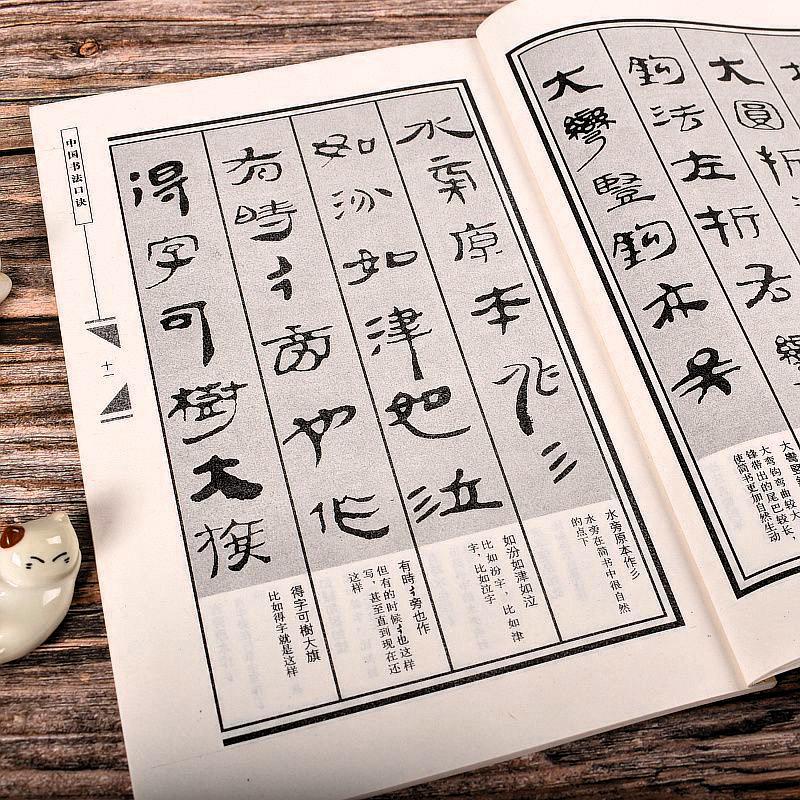 大圓折
鈎法左折右彎
大彎豎鈎亦
大彎豎
大弯钩弯曲较大，
锋带出的尾巴较长，
使简书更加自然生动
水旁原本作彡
如汾如津如泣
有時彳旁也作
得字可樹大旗
水旁原本作彡
水旁在简书中很自然
的点下
如汾如津如泣
比如汾字，比如津
字，比如泣字
有時彳旁也作
但有的时候彳也这样
写，甚至直到现在还
这样
得字可樹大旗
比如得字就是这样
中国书法口诀
十一